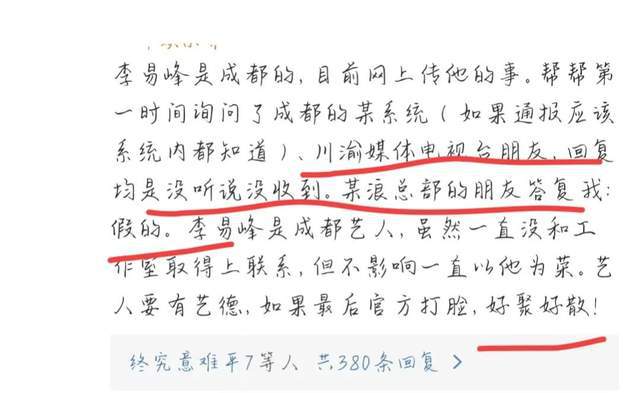 李易峰是成都的,目前网上传他的事。帮帮第
一时间询问了成都的某系统(如果通报应该
系统内都知道)、川渝媒体电视台朋友,回复
均是没听说没收到。某浪总部的朋友答复我:
假的。李易峰是成都艺人,虽然一直没和工
作室取得上联系,但不影响一直以他为菜。艺
人要有艺德,如果最后官方打脸,好聚好散!
终究意难平7等人 共380条回复 >